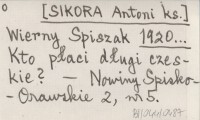 [SIKORA Antoni ks.]
Wierny Spiszak 1920...
Kto płaci długi czes-
kie? — Nowiny Spisko-
-Orawskie 2, nr 5.